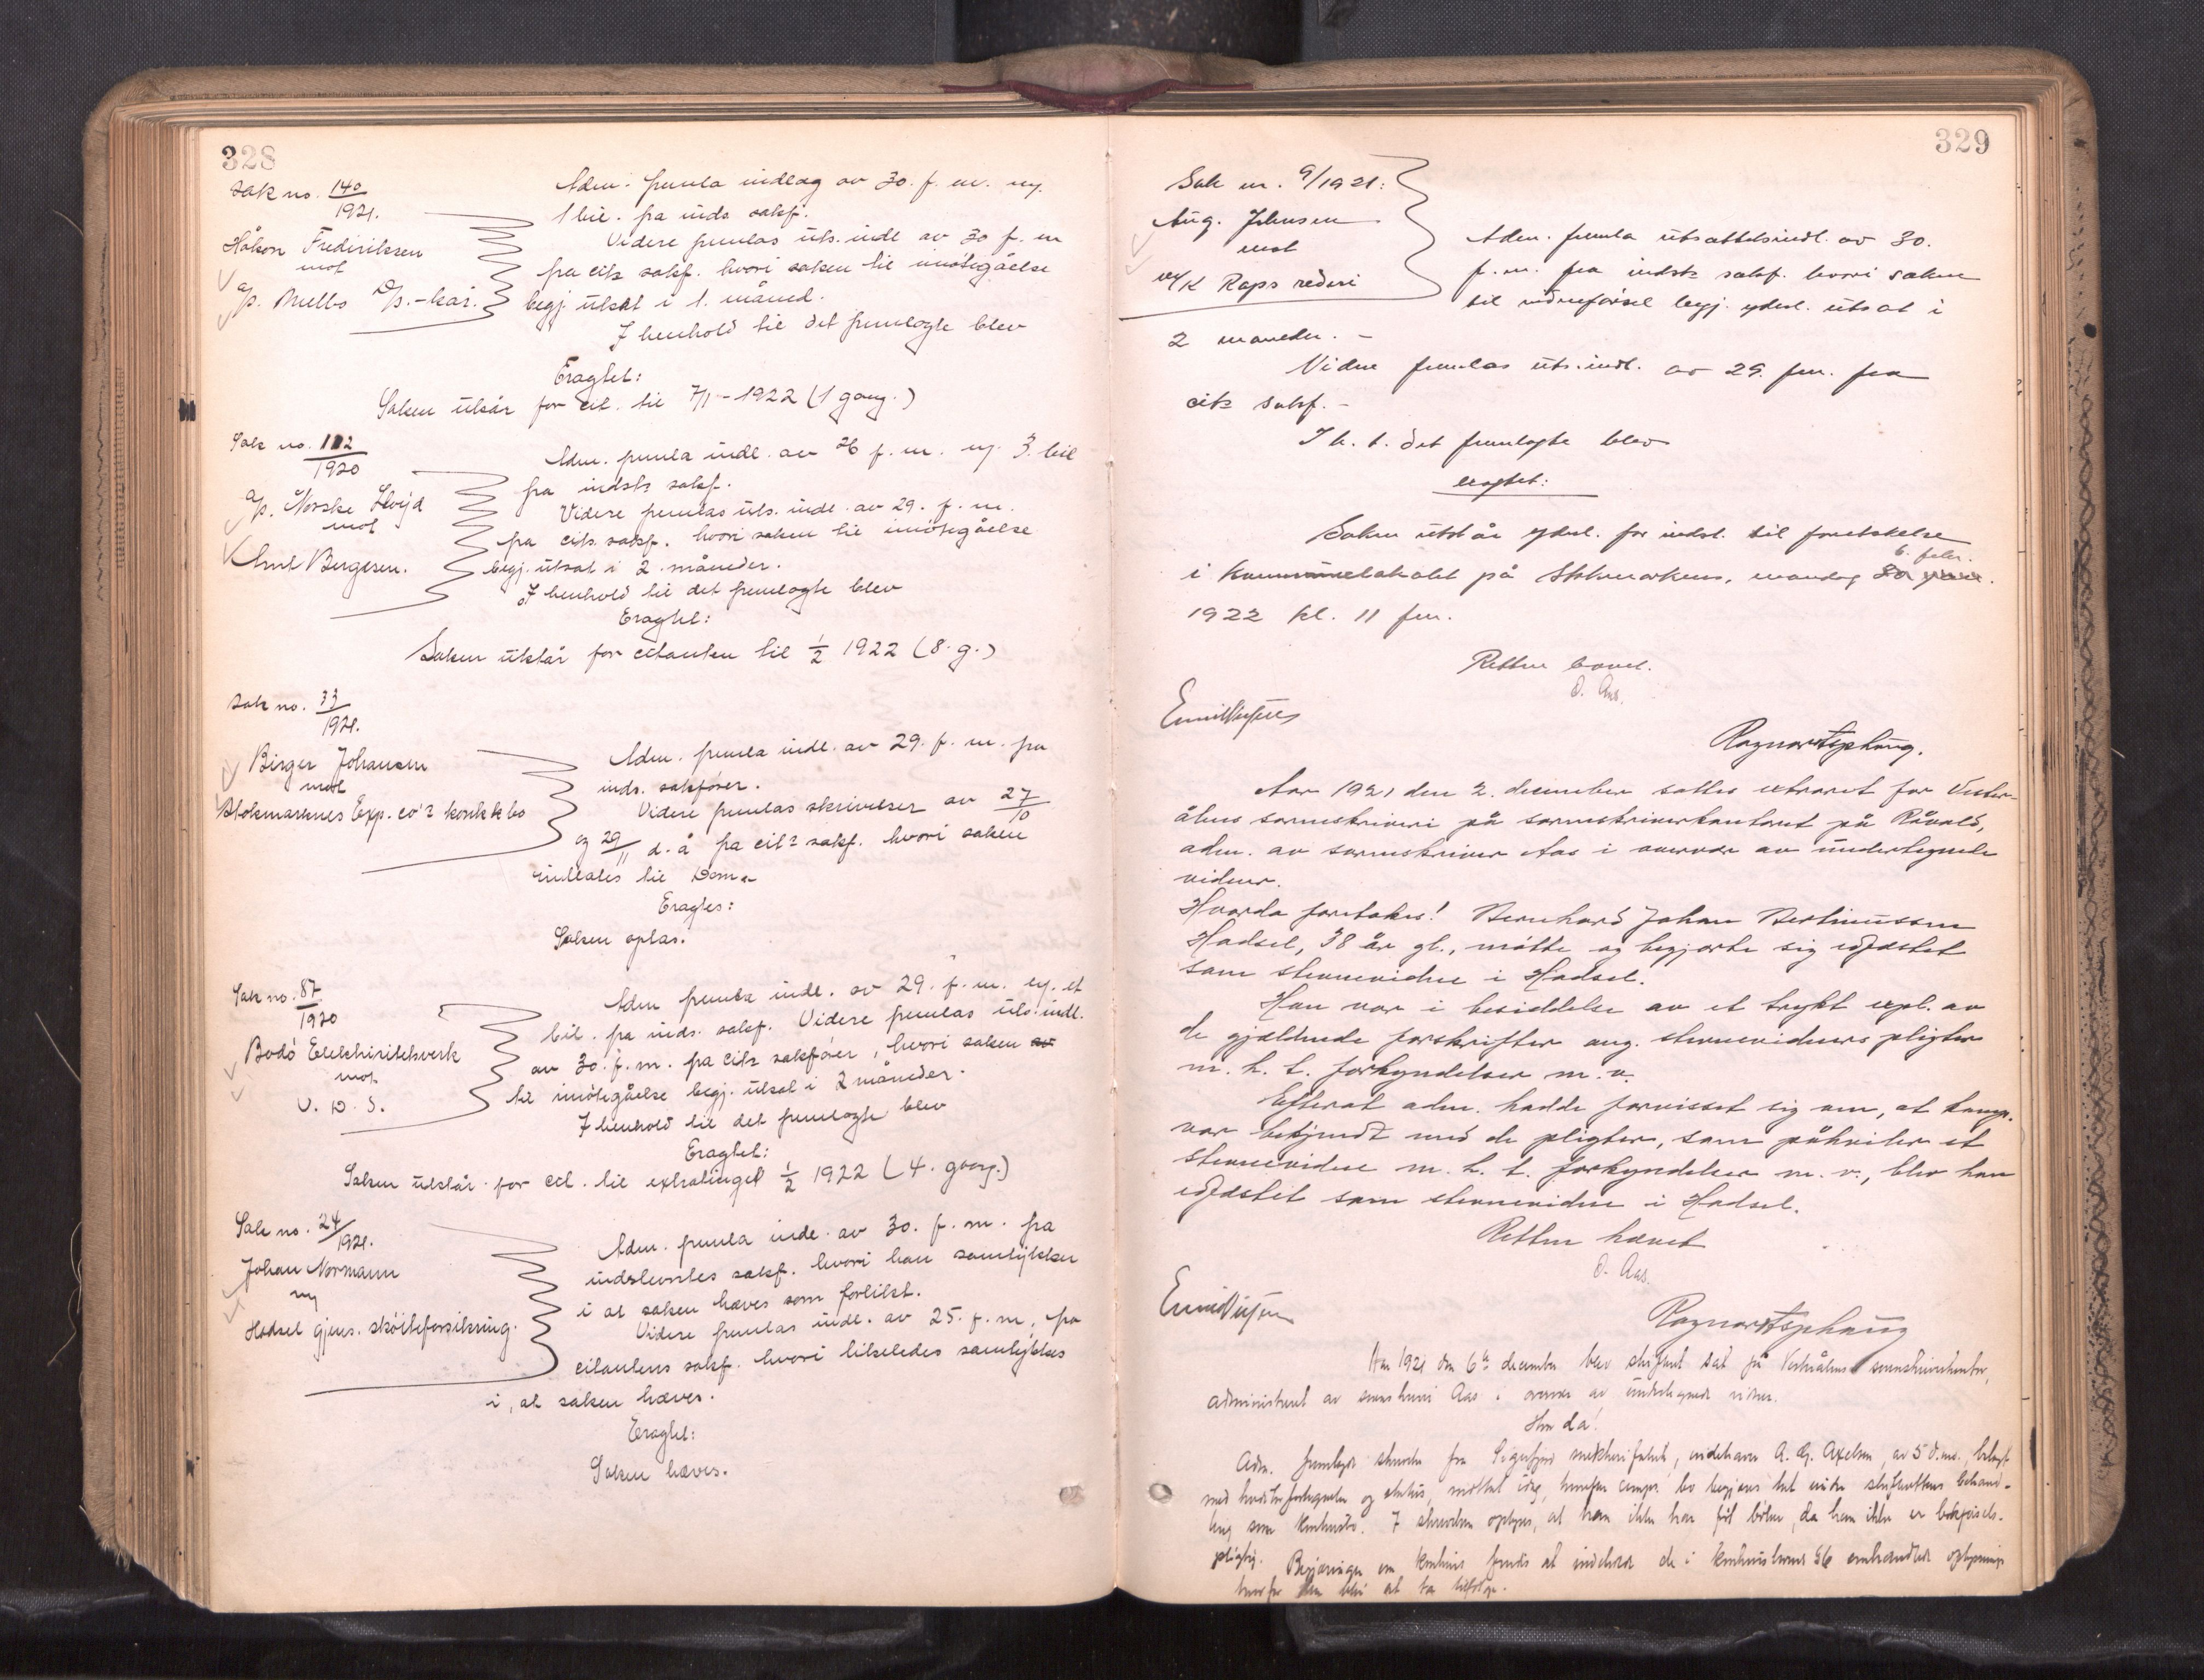 328
Sak no. 140/1921.
Håkon Frederiksen
mot
A/s. Melbo D/s.-kar.
Adm. freml. indlæg av 30. f. m. m.
1 bil. fra inds sakf.
Videre fremlas uts. indl av 30 f. m
fra cits sakf. hvori saken til imøtegåelse
begj. utsat i 1. måned.
I henhold til det fremlagte blev
Eragtet:
Saken utstår for cit. til 7/1 - 1922 (1 gang.)
Sak no. 112/1920
A/s. Norske Lloyd
mot
Knut Bergesen.
Adm. fremla indl. av 26 f. m. m/ 3. bil
fra indsts sakf.
Videre fremlas uts. indl. av 29. f. m.
fra cits. sakf. hvori saken til imøtegåelse
begj. utsat i 2 måneder.
I henhold til det fremlagte blev
Eragtet:
Saken utstår for citanten til 1/2 1922 (8. g.)
Sak no. 33/1921.
Birger Johansen
mot
Stokmarknes Exp. co's konkbo
Adm. fremla indl. av 29. f. m. fra
inds. sakfører.
Videre fremlas skrivelser av 27/10
og 29/11 d. å fra cits sakf. hvori saken
indlates til Dom.
Eragtes:
Saken optas.
Sak no. 87/1920
Bodö Electricitetsverk
mot
V. D. S.
Adm fremla indl. av 29. f. m. m. et
bil. fra inds. sakf. Videre fremlas uts. indl.
av 30. f. m. fra cits sakfører, hvori saken av
til imøtegåelse begj. utsat i 2 måneder.
I henhold til det fremlagte blev
Eragtet:
Saken utstår for cit. til extratinget 1/2 1922 (4. gang.)
Sak no. 24/1921.
Johan Normann
m/
Hadsel gjens. skøiteforsikring.
Adm. fremla indl. av 30. f. m. fra
indstevntes sakf. hvori han samtykker
i at saken hæves som forlikt.
Videre fremlas indl. av 25. f. m. fra
citantens sakf. hvori likeledes samtykkes
i, at saken hæves.
Eragtet:
Saken hæves.
329
Sak nr. 9/1921:
Aug. Johnsen
mot
M/K Raps rederi
Adm. fremla utsættelsesindl. av 30.
f. m. fra indsts sakf. hvori saken
til vidneførsel begj. yderl. utsat i
2 maaneder. -
Videre fremlas uts. indl. av 29. fm. fra
cits sakf. -
I h. t. det fremlagte blev
eragtet:
Saken utstår yderl. for indst. til foretakelse
6. febr.
i Kommunelokalet på Stokmarknes, mandag 30 jan.
1922 kl. 11 fm.
Retten hævet.
O. Aas.
Ragnar Asphaug.
Aar 1921 den 2. december sattes extraret for Vester-
ålens sorenskriveri på sorenskriverkontoret på Råvold,
adm. av sorenskriver Aas i overvær av undertegnede
vidner.
Hvorda foretokes: Bernhard Johan Bertinussen
Hadsel, 38 år gl., møtte og begjærte sig edfæstet
som stevnevidne i Hadsel.
Han var i besiddelse av et trykt expl. av
de gjældende forskrifter ang. stevnevidners pligter
m. h. t. forkyndelser m. v.
Efterat adm. hadde forvisset sig om, at komp.
var bekjendt med de pligter, som påhviler et
stevnevidne m. h. t. forkyndelser m. v., blev han
edfæstet som stevnevidne i Hadsel.
Retten hævet
O. Aas.
Ragnar Asphaug
Aar 1921 den 6te december blev skifteret sat på Vesterålens sorenskriverkontor,
administreret av sorenskriver Aas i overvær av undertegnede vidner.
Hvor da:
Adm. fremlagde skrivelse fra Sigerfjord mek, indehaver A. G. Axelsen, av 5 d.m., bilagt
med kreditorfortegnelse og status, mottat idag, hvorefter bo begjæres tat under skifterettens behand-
ling som konkursbo. I skrivelsen oplyses, at han ikke har ført bøker, da han ikke er bokførsels-
pligtig. Begjæringen om konkurs fandtes at indeholde de i konkurslovens § 6 omhandlede oplysninger
hvorfor den blev at ta tilfølge.